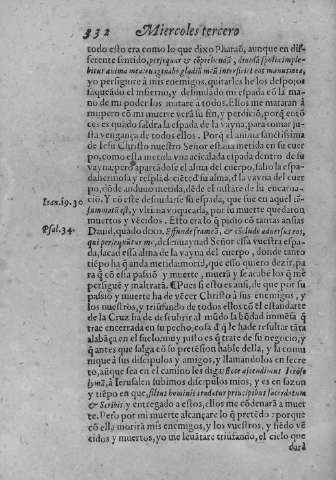 532 Miercoles tercero
todo esto era como lo que dixo Pharaõ, aunque en dif-
ferente sentido, persequar & cõprehendã, diuidã spolia imple-
bitur anima mea: euaginabo gladiũ meũ interficiet eos manus mea,
yo perseguire a mis enemigos, quitarles he los despojos
saqueado el infierno, y desnudando mi espada cõ la ma-
no de mi poder los matare a todos. Ellos me mataran a
mi, pero cõ mi muerte vera su fin, y perdiciõ, porq̃ entõ
ces es quãdo saldra la espada de la vayna, para tomar ju-
sta vengança de todos ellos. Porq̃ el anima sanctissima
de Iesu Christo nuestro Señor estaua metida en su cuer
po, como esta metida vna acicalada espada dentro de su
vayna, pero apartãdose el alma del cuerpo, salio la espa-
da
Ioan. 19. 30
ciõ. Y cõ este desnudarse su espada, que fue en aquel cõ-
summatũ est, y vltima voqueada, por su muerte quedaron
muertos y vécidos. Esto era lo q̃ pidio cõ tantas ansias
Psal. 34.
Dauid, quãdo dixo. Effunde frameã, & cõclude aduersus eos,
qui persequũtur me, desemuaynad Señor essa vuestra espa-
da, sacad essa alma de la vayna del cuerpo, donde tanto
tiẽpo ha q̃ anda metida
ra q̃ cõ essa passiõ y muerte, muerã y se acabe los q̃ me
perseguẽ y maltratã. ¶ Pues si esto es ansi, de que por su
passiõ y muerte ha de vẽcer Christo a sus enemigos, y
los nuestros, y triũfando de todos ellos cõ el estandarte
de la Cruz ha de descubrir al mũdo la bõdad inmẽsa q̃
trae encerrada en su pecho, cosa d' q̃ le ha de resultar tãta
alabãça en el suelo, muy justo es q̃ trate de su negocio, y
q̃ antes que salga cõ su pretẽsion hable della, y la comu
nique a sus discipulos y amigos, y llamandolos en secre-
to, aunque sea en el camino les diga: Ecce ascendimus Ieroso
lymã, a Ierusalen subimos discipulos mios, y es en sazon
y tiẽpo en que, filius hominis tradetur principibus sacerdotum
& Scribis y entregado a estos, ellos me cõdenarã a muer
te. Pero por mi muerte alcançare lo q̃ pretẽdo: porque
cõ ella morirã mis enemigos, y los vuestros, y siẽdo vẽ
cidos y muertos, yo me leuãtare triũfando, el cielo que